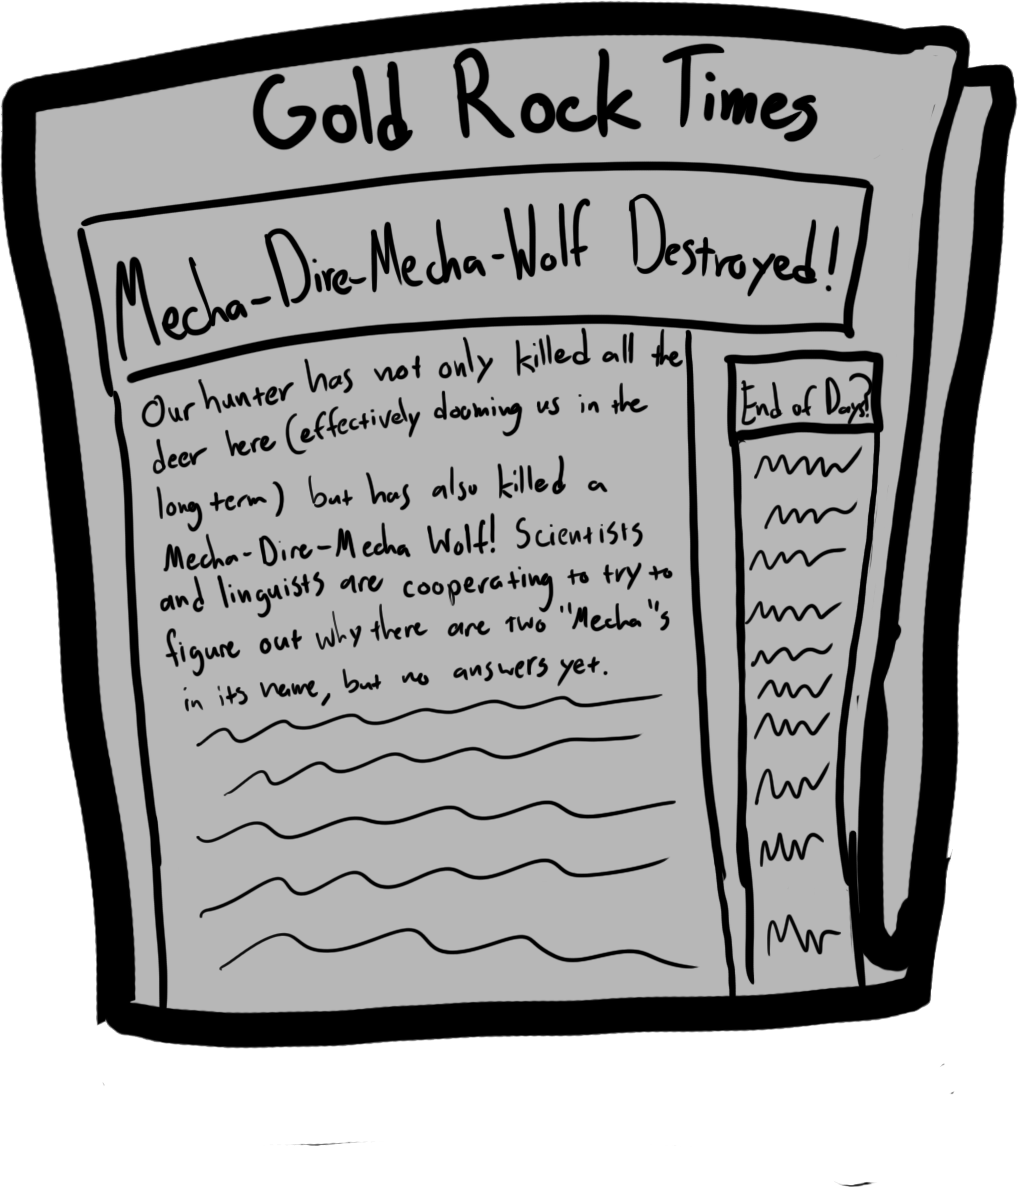 Gold Rock Times
Mecha-Dire-Mecha-Wolf Destroyed!
Our hunter has not only killed all the
deer here (effectively dooming us in the
long term) but has also killed a
Mecha-Dire-Mecha Wolf! Scientists
and linguists are cooperating to try to
figure out why there are two "Mecha"s
in its name, but no answers yet.
End of Days?